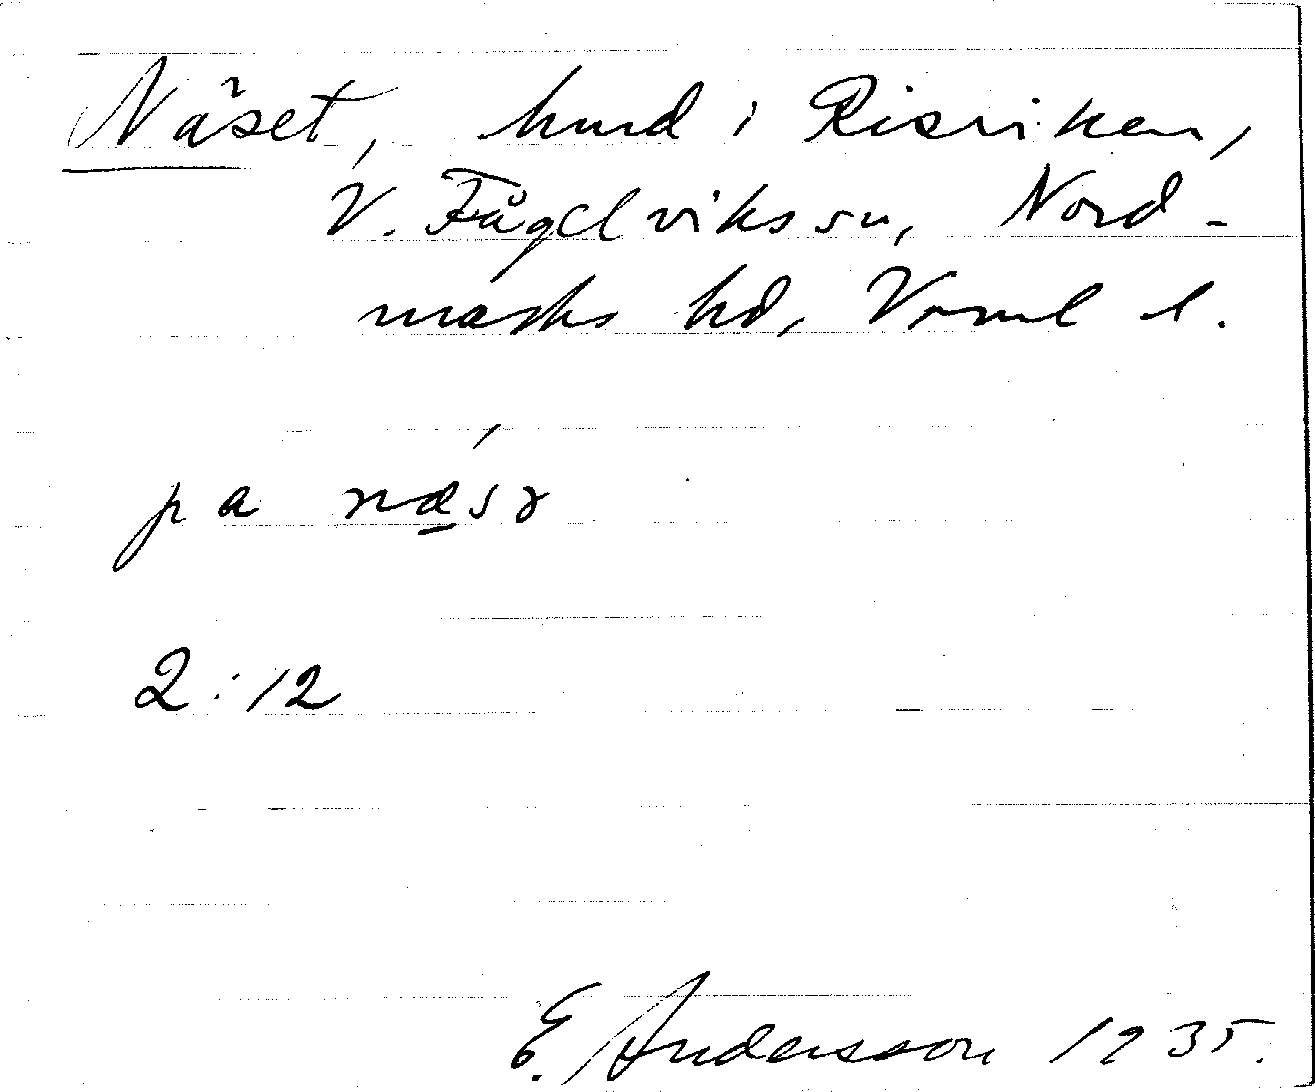 Näset, hmd i Risviken,
V. Fågelviks sn, Nord-
marks hd, Vrml l.
pa næ̱´sə
2:12
E. Andersson 1935.